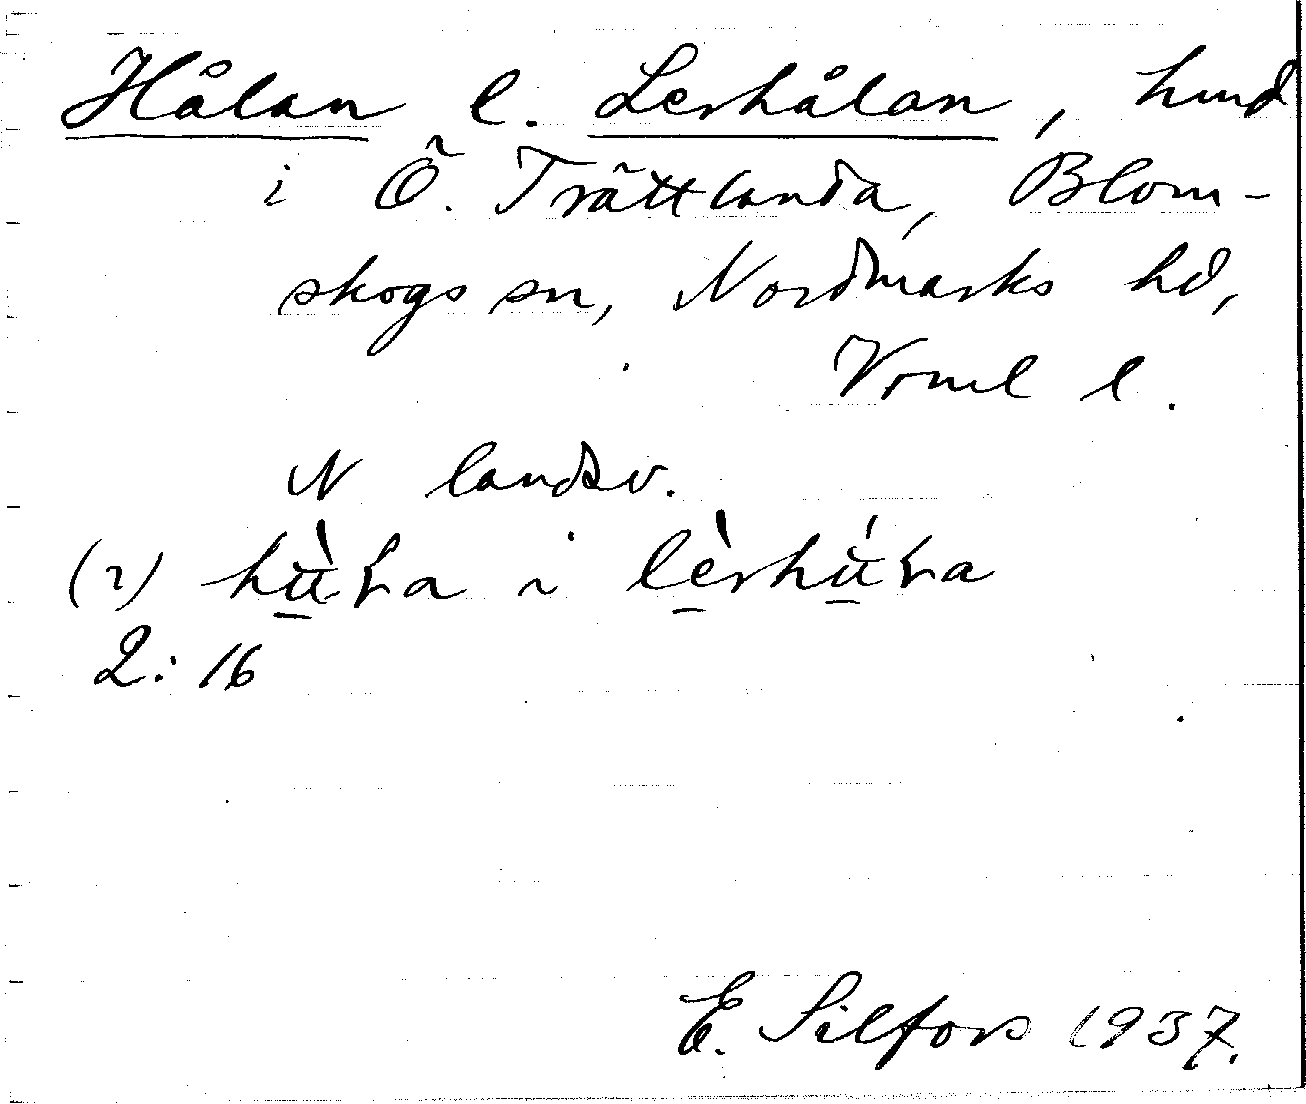 Hålan l. Lerhålan, hmd
i Ö. Trättlanda, Blom-
skogs sn, Nordmarks hd,
Vrml l.
N landsv.
(2)
2:16
E. Silfors 1937.